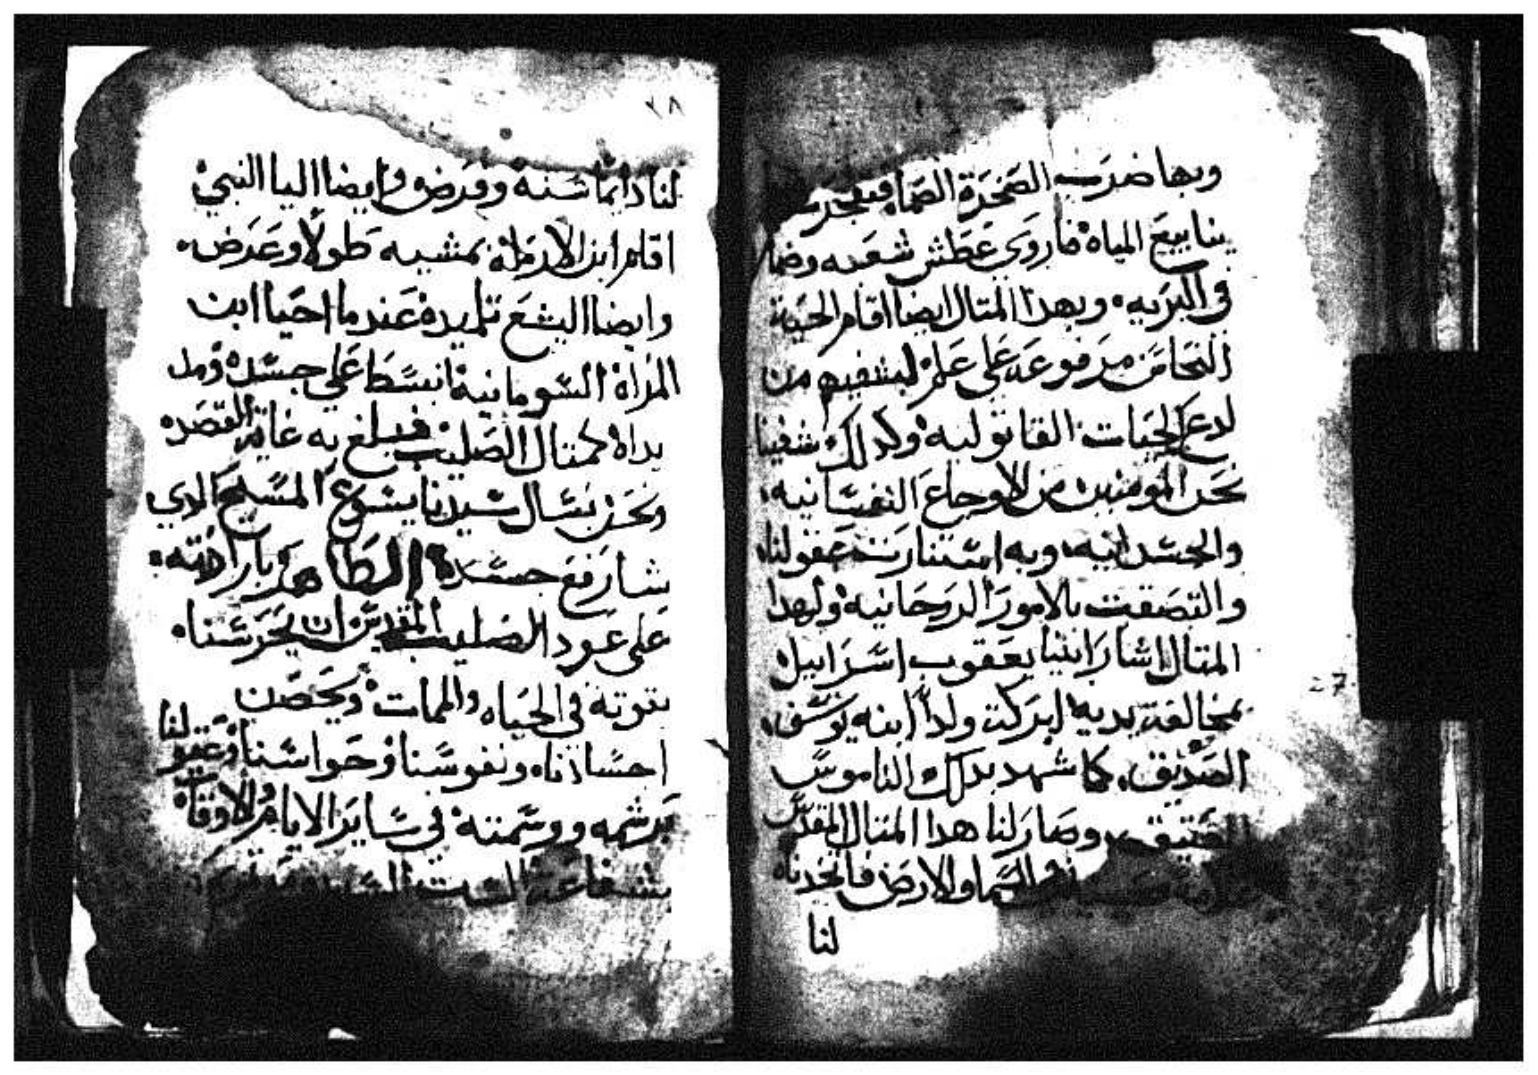 وبها ضرب الصخرة الصما ففجرت
ينابيع المياه فاروي عطش شعبه وضا
في البريه وبهدا المتال ايضا اقام الحية
النحاس مرفوعه على علم ليشفيهم من
لدع الحيات القاتوليه وكدلك شفينا
نحن المومنين من الاوجاع النفسانيه
والجسدانيه وبه استنارت عقولنا
والتصقت بالامور الروحانيه ولهدا
المتال اشار ابينا يعقوب اسراييل
بمخالفة يديه لبركت ولدا ابنه يوسف
الصديق كما شهد بدلك الناموس
العتيق وصار لنا هدا المتال المقدس
السما والارض فاتخدناه
لنا
٢٨
لنا دايما سنة وفرض وايضا اليا النبي
اقام ابن الارملة بمشيه طولا وعرض
وايضا اليشع تلميده عندما احيا ابن
المراة السومانية انبسط على جسده ومد
يداه كمتال الصليب فبلغ به غاية القصد
ونحن نسال سيدنا يسوع المسيح الدي
شا رفع جسده الطاهر بارادته
على عود الصليب المقدس ان يحرسنا
بقوته في الحياه والممات ويحصن
اجسادنا ونفوسنا وحواسنا وعقولنا
برشمه ووسمته في ساير الايام والاوقات
بشفاعة الست السيده